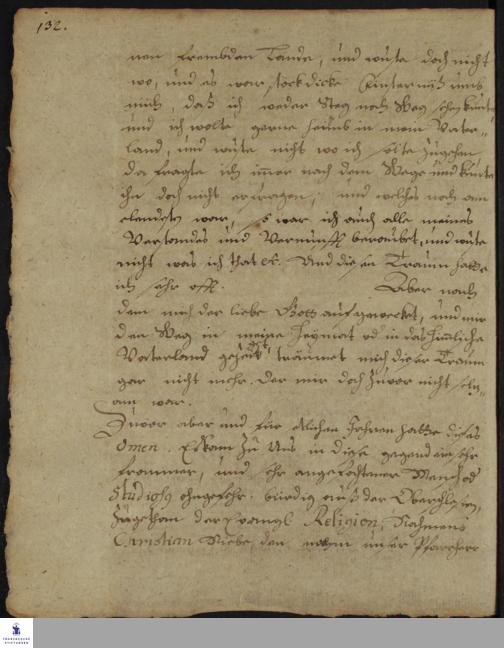 132.
nen frembden Lande, und wuste doch nicht
wo, und es war stockdicke Finsternüß umb
mich, daß ich weder Steg noch Weg sehen kunte
und ich wolte gerne heimb in mein Vater-
land, und wuste nicht wo ich solte zugehen
da fragte ich immer nach dem Wege und kunte
ihn doch nicht erfragen, und welches noch am
elendesten war, so war ich auch alle meines
Verstandes und Vernunfft beraubet, und wuste
nicht was ich that etc. Und diesen Traum hatte
ich sehr offt. Aber nach
dem mich der liebe Gott aufgewecket, und mir
den Weg in meine Heymat od in das himlische
Vaterland gezeiget, träumet mich dieser Traum
gar nicht mehr. Der mir doch zuvor nicht
war.
Zuvor aber und für etlichen Jahren hatte dieses
Omen. Es kam zu Uns in diese gegend ein sehr
frommer, und sehr angefochtener Mensch od
Studiosus ohngefehr. bürdig auß der Oberschlesien,
Zugethan der Evangl Religion, Nahmens
Christian den nahm unser Pfarrherr
FRANCKESCHE
STIFTUNGEN